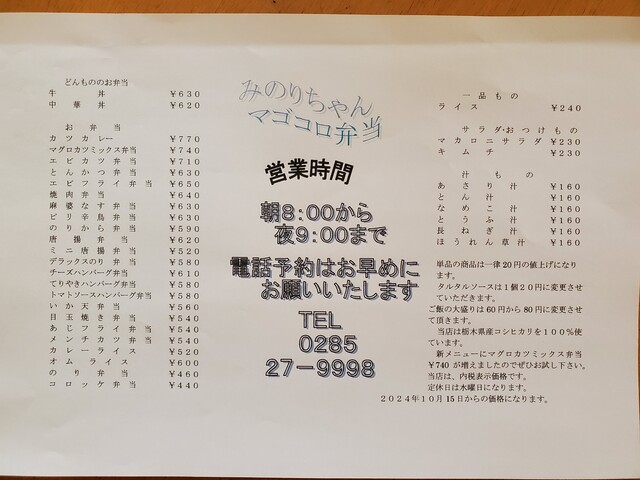 どんもののお弁当
牛丼 ¥630
中華丼 ¥620
お弁当
カツカレー ¥770
マグロカツミックス弁当 ¥740
エビカツ弁当 ¥710
とんかつ弁当 ¥630
エビフライ弁当 ¥650
焼肉弁当 ¥640
麻婆なす弁当 ¥630
ピリ辛鳥弁当 ¥630
のりから弁当 ¥590
唐揚弁当 ¥620
ミニ唐揚弁当 ¥520
デラックスのり弁当 ¥580
チーズハンバーグ弁当 ¥610
てりやきハンバーグ弁当 ¥580
トマトソースハンバーグ弁当 ¥580
いか天弁当 ¥560
目玉焼き弁当 ¥540
あじフライ弁当 ¥540
メンチカツ弁当 ¥540
カレーライス ¥520
オムライス ¥600
のり弁当 ¥460
コロッケ弁当 ¥440
みのりちゃん
マゴコロ弁当
営業時間
朝8:00から
夜9:00まで
電話予約はお早めに
お願いいたします
TEL
0285
27-9998
一品もの
ライス ¥240
サラダ・おつけもの
マカロニサラダ ¥230
キムチ ¥230
汁もの
あさり汁 ¥160
とん汁 ¥160
なめこ汁 ¥160
とうふ汁 ¥160
長ねぎ汁 ¥160
ほうれん草汁 ¥160
単品の商品は一律20円の値上げになり
ます。
タルタルソースは1個20円に変更させ
ていただきます。
ご飯の大盛りは60円から80円に変更させ
て頂きます。
当店は栃木県産コシヒカリを100%使
ています。
新メニューにマグロカツミックス弁当
¥740が増えましたのでぜひお試し下さい。
当店は、内税表示価格です。
定休日は水曜日になります。
2024年10月15日からの価格になります。